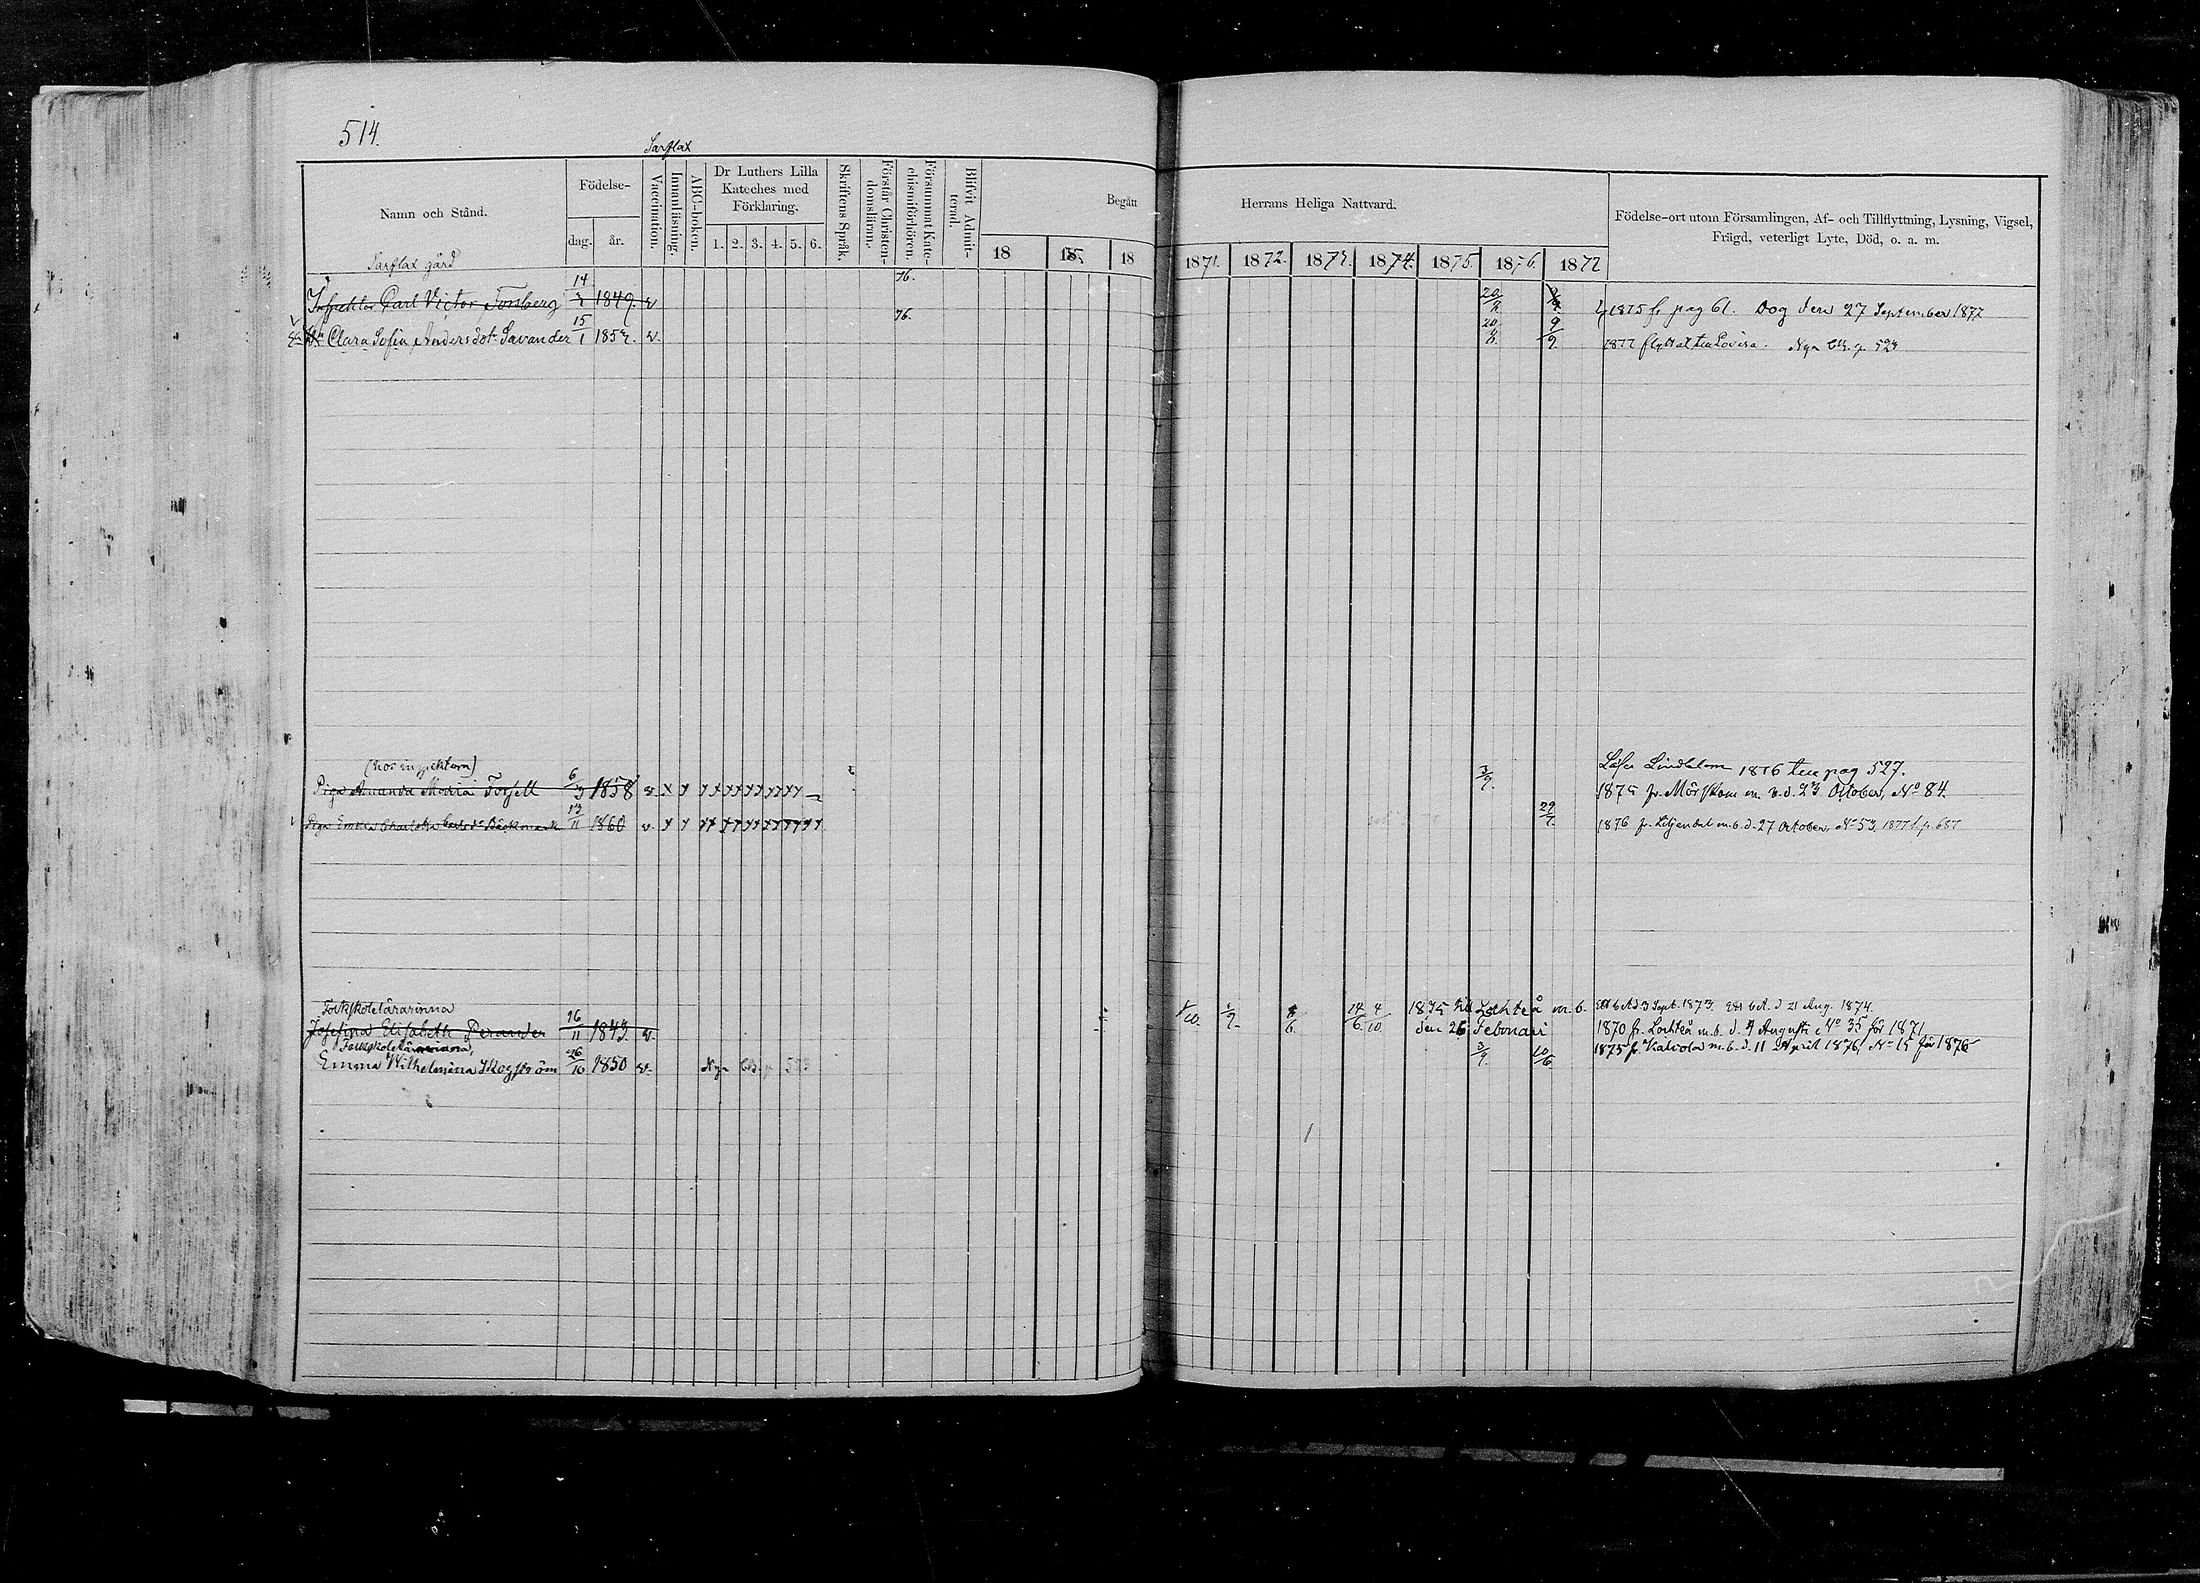 514.
Sarflax
Namn och Stånd.
Födelse-
dag.
år.
Vaccination.
Innanläsning.
ABC-boken.
Dr Luthers Lilla Kateches med Förklaring.
1. 2. 3. 4. 5. 6.
Skriftens Språk.
Förstår Christendomsläran.
Försummat Katechismiförhören.
Blifvit Admitterad.
Begått
Herrans Heliga Nattvard.
18 18 18 1871. 1872. 1873. 1874. 1875. 1876. 1877
Födelse-ort utom Församlingen, Af- och Tillflyttning, Lysning, Vigsel,
Frägd, veterligt Lyte, Död, o. a. m.
Sarflax gård
Inspektor Carl Victor Forsberg 14 1849. v 76. 20 1875 fr pag 61. Dog den 27 September 1877
Clara Sofia Andersdotr Savander 15/1 v. 76. 20 9/9. 1877 flyttat till Lovisa. Nya p. 523
(hos inspektorn)
Piga Amanda Maria Forsell 6/3 1858 v. 3/9. 1876 till pag 527.
fr. Mörskom m. b. d. 23 October, No 84.
Piga Emma Charlotta Carlsdr Bäckmark 13/11 1860 v. 29 1876 fr. Liljendal m. b. d. 27 October, No 53, 1877 t. p. 687
Folkskolelärarinna
Josefina Elisabeth Perander 16/11 1843. v. 14/6 4/10 1875 till Lochteå m. b. den 26 Februari
3 Sept. 1873. 21 Aug. 1874.
1870 fr. Lochteå m. b. d. 4 Augusti No 35 för 1871
Folkskolelärarinna,
Emma Wilhelmina Skogström 26/10 1850 v. Nya 523 3/9. 10/6 1875 fr. Kalvola m. b. d. 11 April 1876, No 15 för 1876